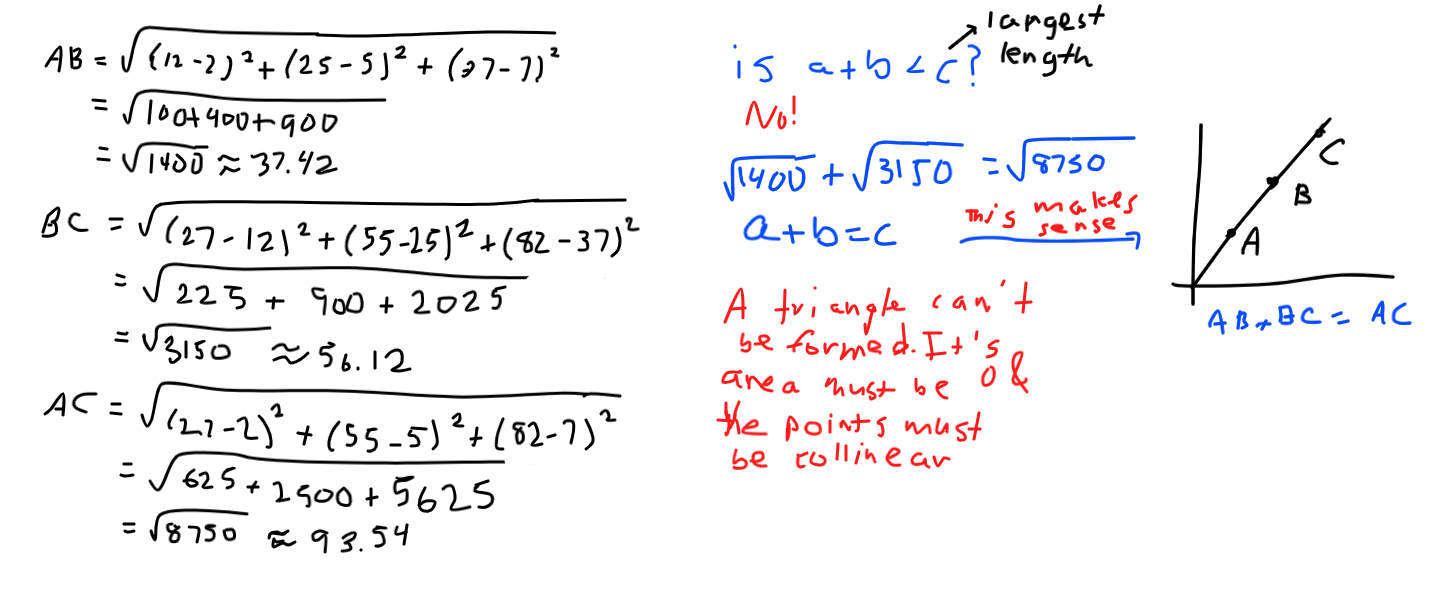 AB = √(12-2)²+(25-5)²+(37-7)²
= √100+400+900
= √1400 ≈ 37.42
BC = √(27-12)²+(55-25)²+(82-37)²
= √225 + 900 + 2025
= √3150 ≈ 56.12
AC = √(27-2)²+(55-5)²+(82-7)²
= √625+2500+5625
= √8750 ≈ 93.54
largest
length
is a+b<c?
No!
√1400 + √3150 = √8750
a+b=c
This makes
sense
A triangle can't
be formed. It's
area must be 0 &
the points must
be collinear
C
B
A
AB+BC = AC